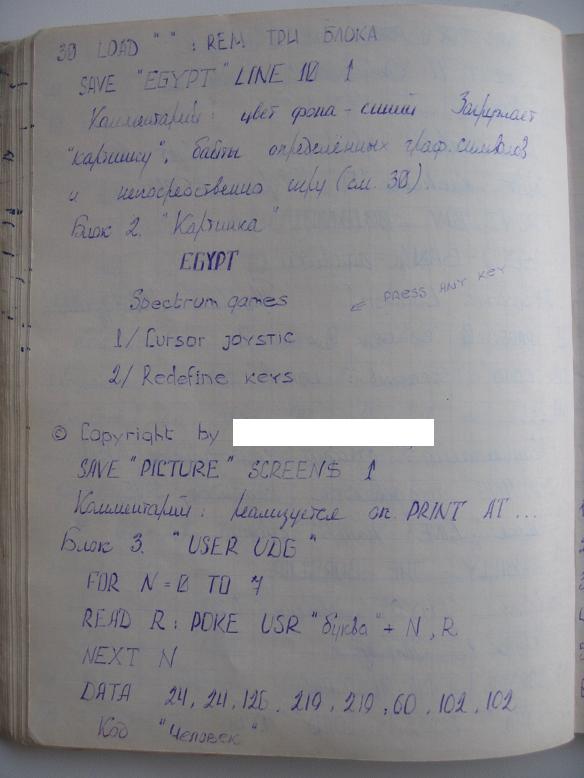 30 LOAD " " : REM ТРИ БЛОКА
SAVE "EGYPT" LINE 10 1
Комментарий: цвет фона - синий Загружает
"картинку", байты определённых граф. символов
и непосредственно игру (см. 30)
Блок 2. "Картинка"
EGYPT
Spectrum games
PRESS ANY KEY
1/ Cursor joystic
2/ Redefine keys
© Copyright by
SAVE "PICTURE" SCREEN$ 1
Комментарий: реализуется оп. PRINT AT ...
Блок 3. "USER UDG"
FOR N=0 TO 7
READ R: POKE USR "буква" + N, R
NEXT N
DATA 24, 24, 126, 219, 219, 60, 102, 102
Код "Человек"